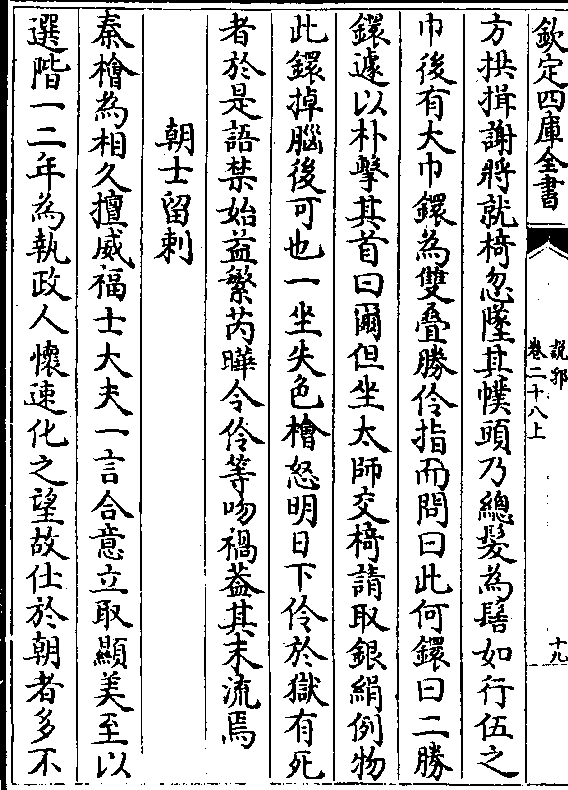 欽定四庫全書
說郛
卷二十八上
十九
方拱揖謝將就椅忽墜其幞頭乃總髮為髻如行伍之
巾後有大巾鐶為雙疊勝伶指而問曰此何鐶曰二勝
鐶遽以朴擊其首曰爾但坐太師交椅請取銀絹例物
此鐶掉腦後可也一坐失色檜怒明日下伶於獄有死
者於是語禁始益繁芮曄令伶等吻禍葢其末流焉
朝士留刺
秦檜為相久擅威福士大夫一言合意立取顯美至以
選階一二年為執政人懷速化之望故仕於朝者多不